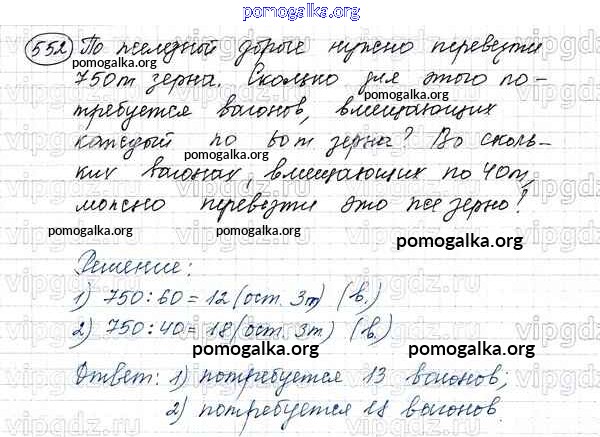 pomogalka.org
552 По железной дороге нужно перевезти
pomogalka.org
750т зерна. Сколько для этого по-
требуется вагонов, вмещающих
pomogalka.org
каждый по 60т зерна? Во сколь-
pomogalka.org
ких вагонах, вмещающих по 40т,
можно перевезти это же зерно?
pomogalka.org
pomogalka.org
Решение:
1) 750:60=12(ост. 3т) (в.)
2) 750:40=18(ост. 3т) (в.)
pomogalka.org pomogalka.org
Ответ: 1) потребуется 13 вагонов;
2) потребуется вагонов.
vipgdz.ru